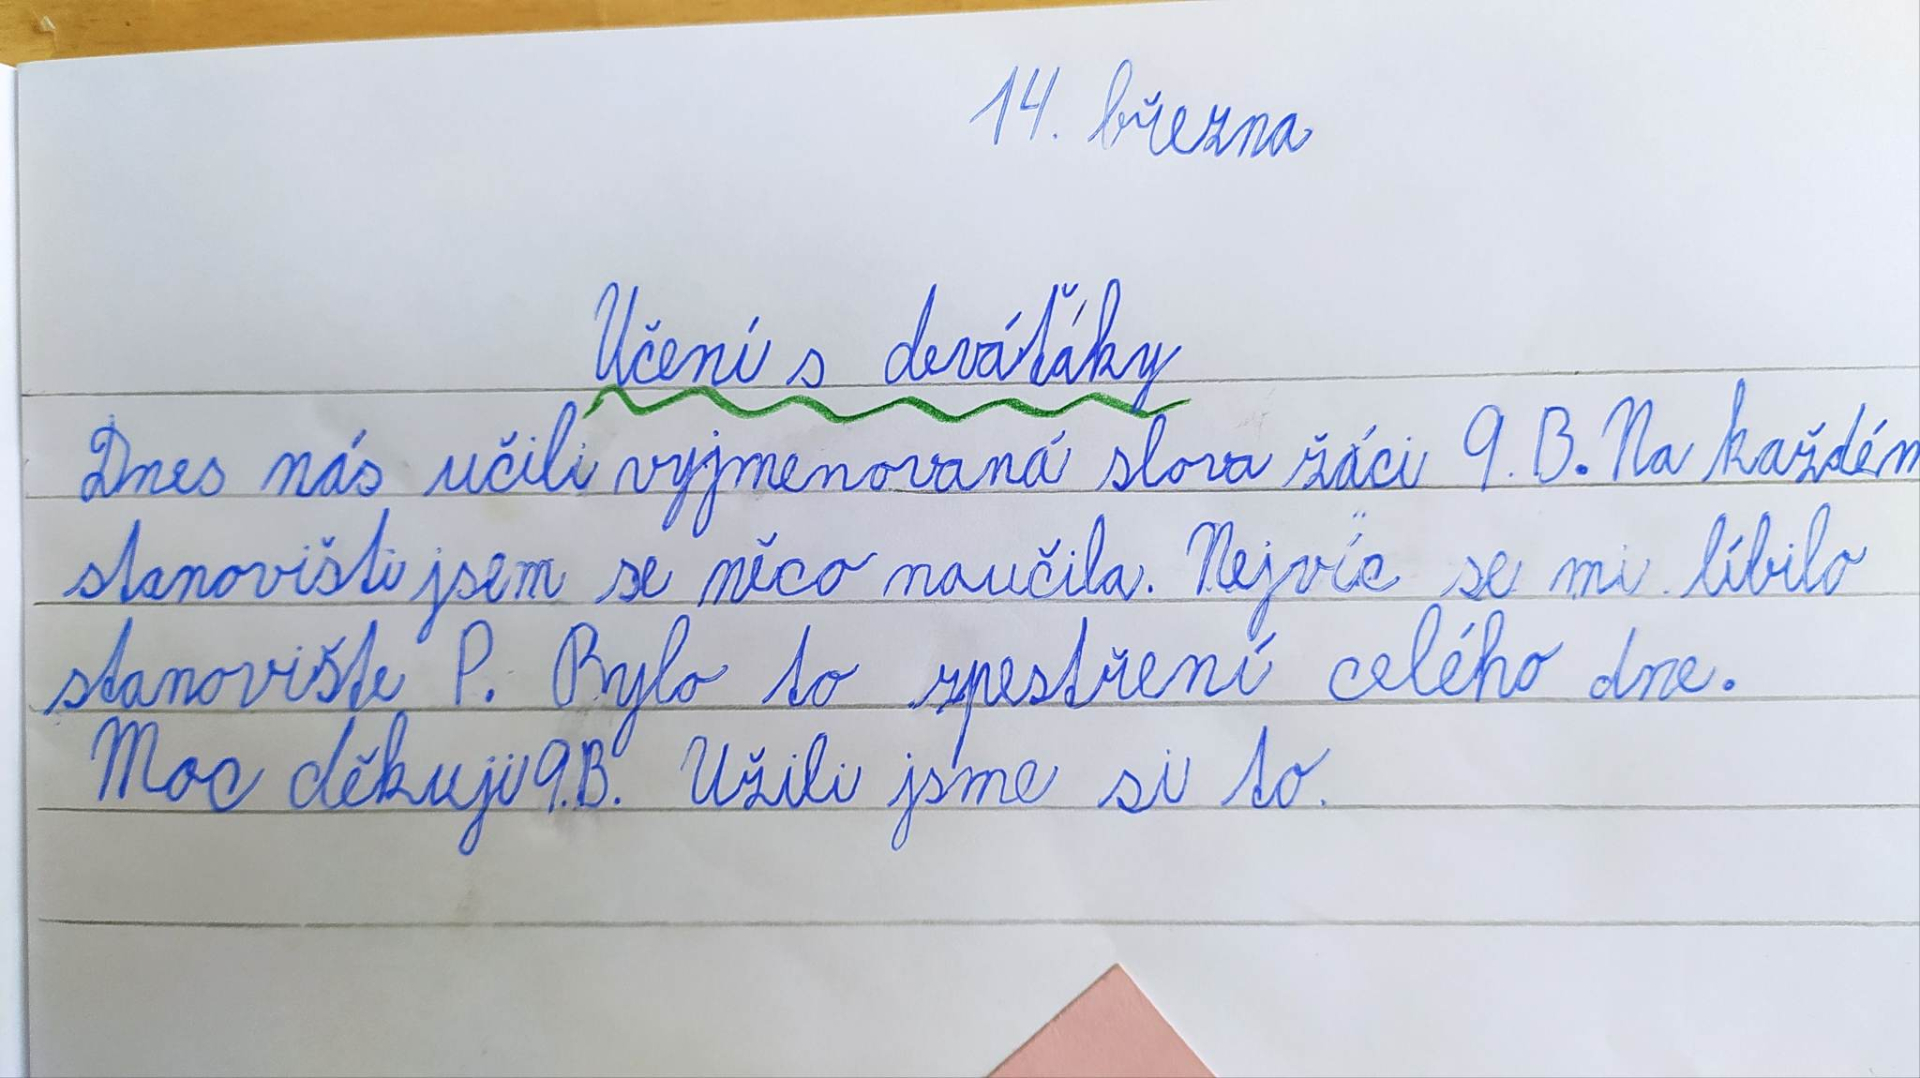 14. března
Učení s deváťáky
Dnes nás učili vyjmenovaná slova žáci 9. B. Na každém
stanovišti jsem se něco naučila. Nejvíc se mi líbilo
stanoviště P. Bylo to zpestření celého dne.
Moc děkuji 9.B. Užili jsme si to.